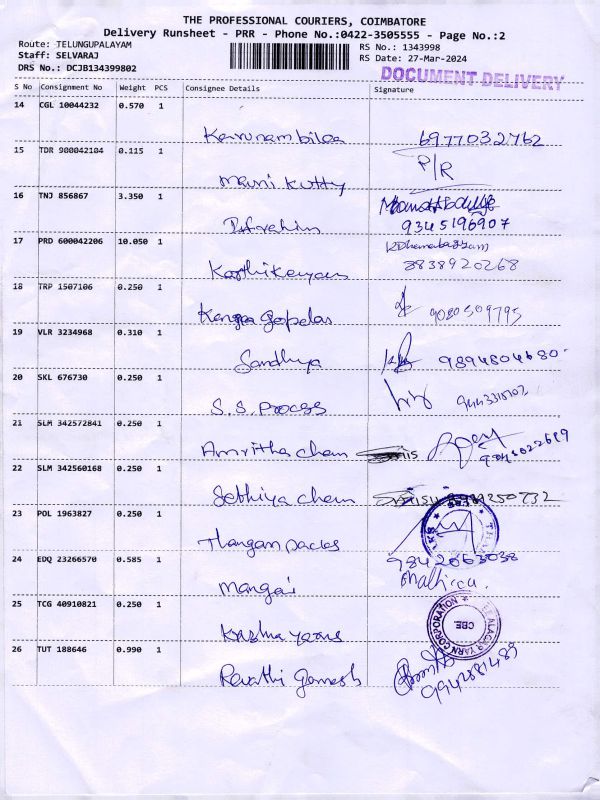 THE PROFESSIONAL COURIERS, COIMBATORE
Delivery Runsheet - PRR - Phone No.:0422-3505555 - Page No.:2
Route: TELUNGUPALAYAM
RS No.: 1343998
Staff: SELVARAJ
RS Date: 27-Mar-2024
DRS No.: DCJB134399802
DOCUMENT DELIVERY
S No Consignment No Weight PCS Consignee Details Signature
14 CGL 10044232 0.570 1
6977032762
15 TDR 900042104 0.115 1
P/R
Mani Kutty
16 TNJ 856867 3.350 1
Ibrahim 9345196907
17 PRD 600042206 10.050 1
Karthikeyan 8838920268
18 TRP 1507106 0.250 1
9080509795
19 VLR 3234968 0.310 1
Sandhya 9894804680
20 SKL 676730 0.250 1
S.S. Process
21 SLM 342572841 0.250 1
Amritha chem
22 SLM 342560168 0.250 1
Sethiya chem
23 POL 1963827 0.250 1
9842063038
24 EDQ 23266570 0.585 1
Mangai
25 TCG 40910821 0.250 1
YARN CORPORATION
CBE.
Krishna yarns
26 TUT 188646 0.990 1
Revathi Ganesh
9942881489